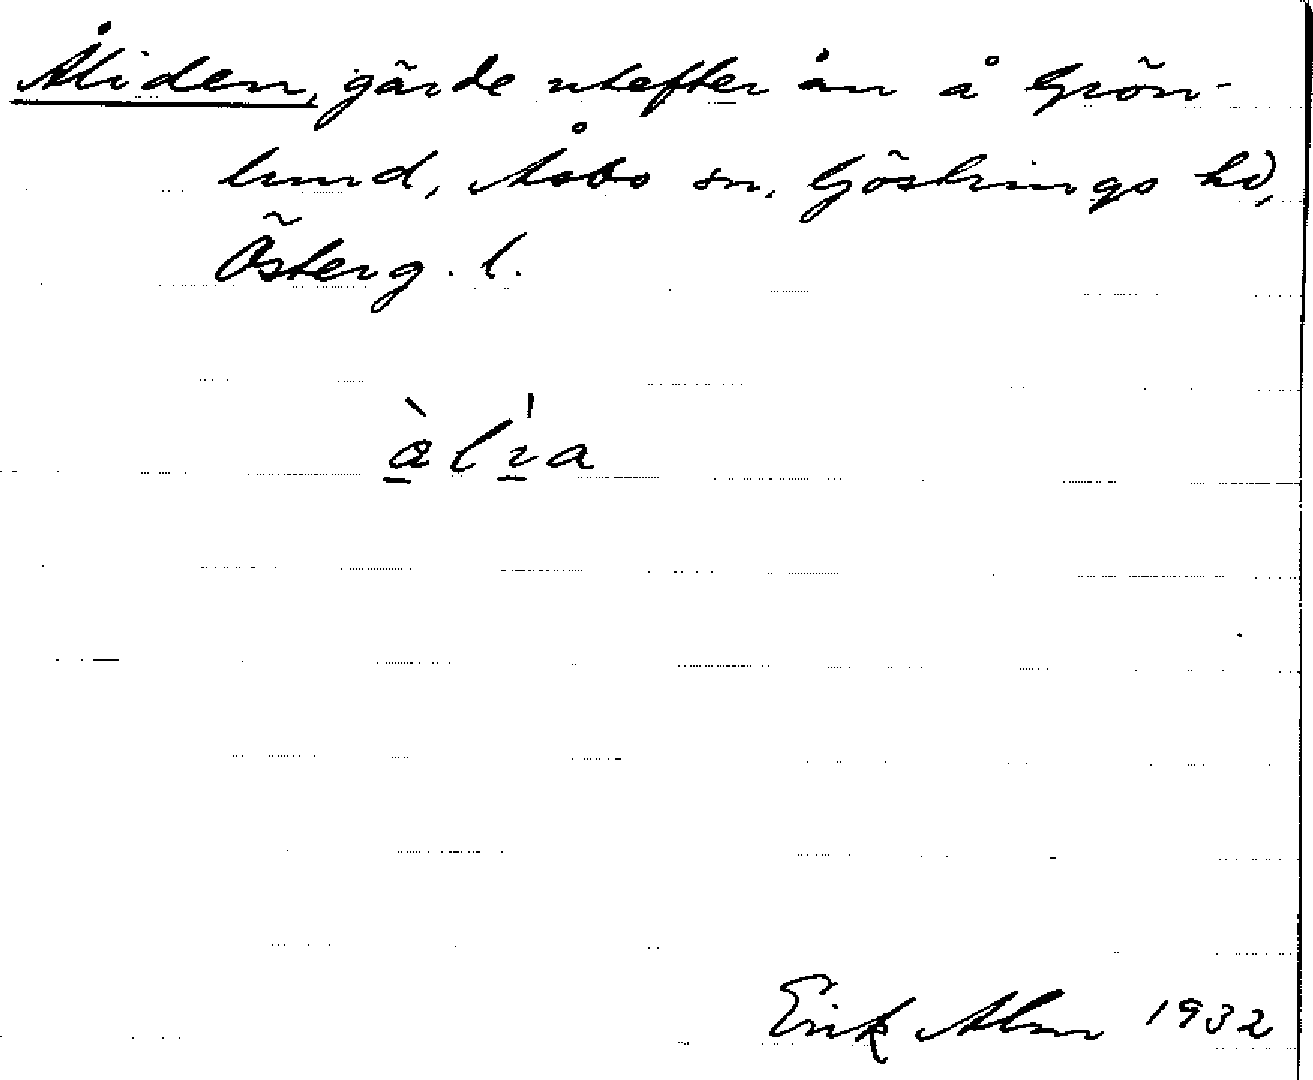 Åliden, gärde utefter ån å Grön-
lund, Åsbo sn, Göstrings hd,
Österg. l.
àlı̍a
Erik Alm 1932